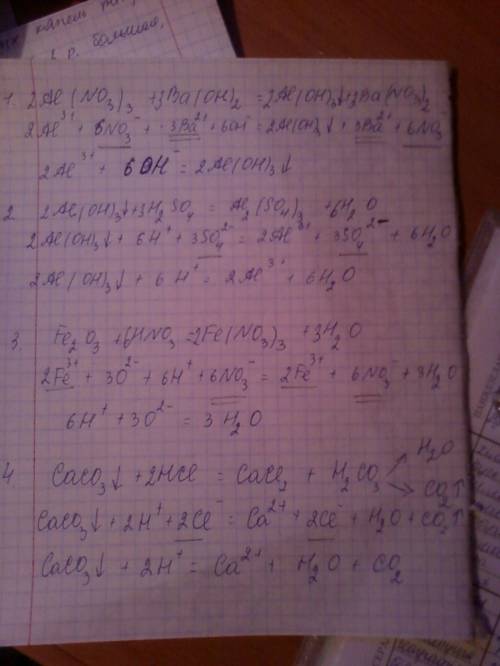 капель
в р. большая,
1. 2Al(NO₃)₃ + 3Ba(OH)₂ = 2Al(OH)₃↓+3Ba(NO₃)₂
2Al³⁺ + 6NO₃⁻ + 3Ba²⁺ + 6OH⁻ = 2Al(OH)₃↓ + 3Ba²⁺ + 6NO₃⁻
2Al³⁺ + 6OH⁻ = 2Al(OH)₃↓
2. 2Al(OH)₃↓+3H₂SO₄ = Al₂(SO₄)₃ + 6H₂O
2Al(OH)₃↓ + 6H⁺ + 3SO₄²⁻ = 2Al³⁺ + 3SO₄²⁻ + 6H₂O
2Al(OH)₃↓ + 6H⁺ = 2Al³⁺ + 6H₂O
3. Fe₂O₃ + 6HNO₃ = 2Fe(NO₃)₃ + 3H₂O
2Fe³⁺ + 3O²⁻ + 6H⁺ + 6NO₃⁻ = 2Fe³⁺ + 6NO₃⁻ + 3H₂O
6H⁺ + 3O²⁻ = 3H₂O
4. CaCO₃↓ + 2HCl = CaCl₂ + H₂CO₃ ↗ H₂O ↘ CO₂↑
CaCO₃↓ + 2H⁺ + 2Cl⁻ = Ca²⁺ + 2Cl⁻ + H₂O + CO₂↑
CaCO₃↓ + 2H⁺ = Ca²⁺ + H₂O + CO₂